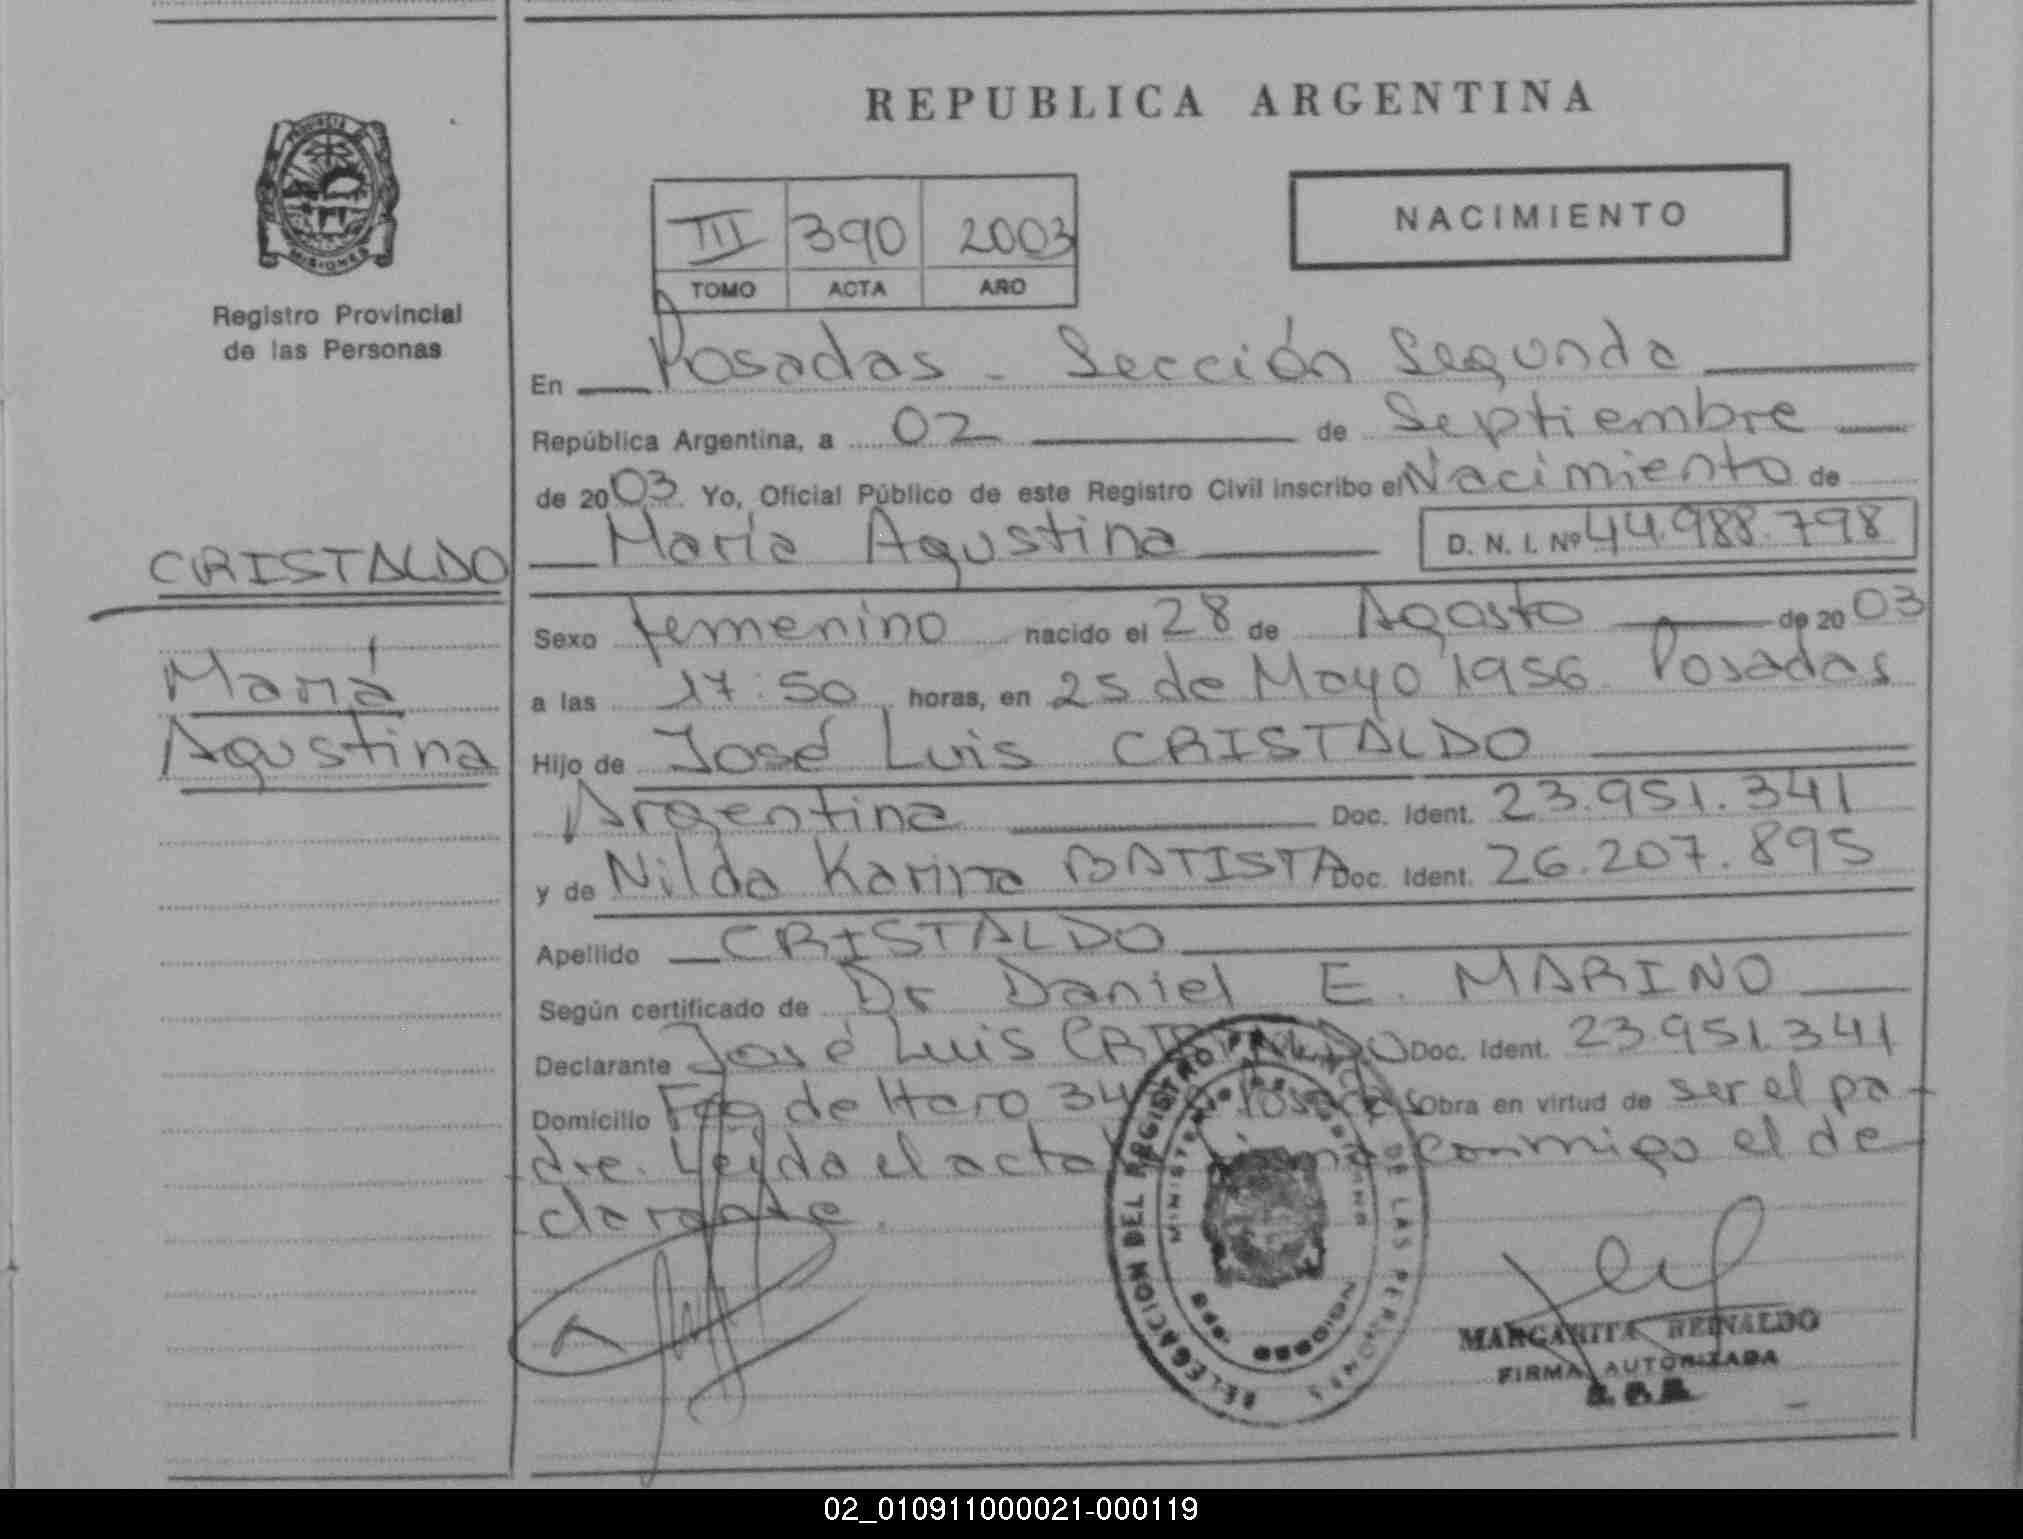 REPUBLICA ARGENTINA
PROVINCIA DE
MISIONES
Registro Provincial
de las Personas
III 390 2003
TOMO ACTA AÑO
NACIMIENTO
En Posadas - Sección Segunda
República Argentina, a 02 de Septiembre
de 2003 Yo, Oficial Público de este Registro Civil inscribo el Nacimiento de
María Agustina D. N. I. Nº 44.988.798
CRISTALDO
María
Agustina
Sexo femenino nacido el 28 de Agosto de 2003
a las 17:50 horas, en 25 de Mayo 1956 Posadas
Hijo de José Luis CRISTALDO
Argentina Doc. Ident. 23.951.341
y de Nilda Karina BATISTA Doc. Ident. 26.207.895
Apellido CRISTALDO
Según certificado de Dr Daniel E. MARINO
Declarante José Luis CRISTALDO Doc. Ident. 23.951.341
Domicilio de Haro 34 Posadas Obra en virtud de ser el pa-
dre. Leída el acta conmigo el de-
clarante.
DELEGACION DEL REGISTRO DE LAS PERSONAS
MINISTERIO DE
POSADAS MISIONES
MARGARITA REINALDO
FIRMA AUTORIZADA
02_010911000021-000119